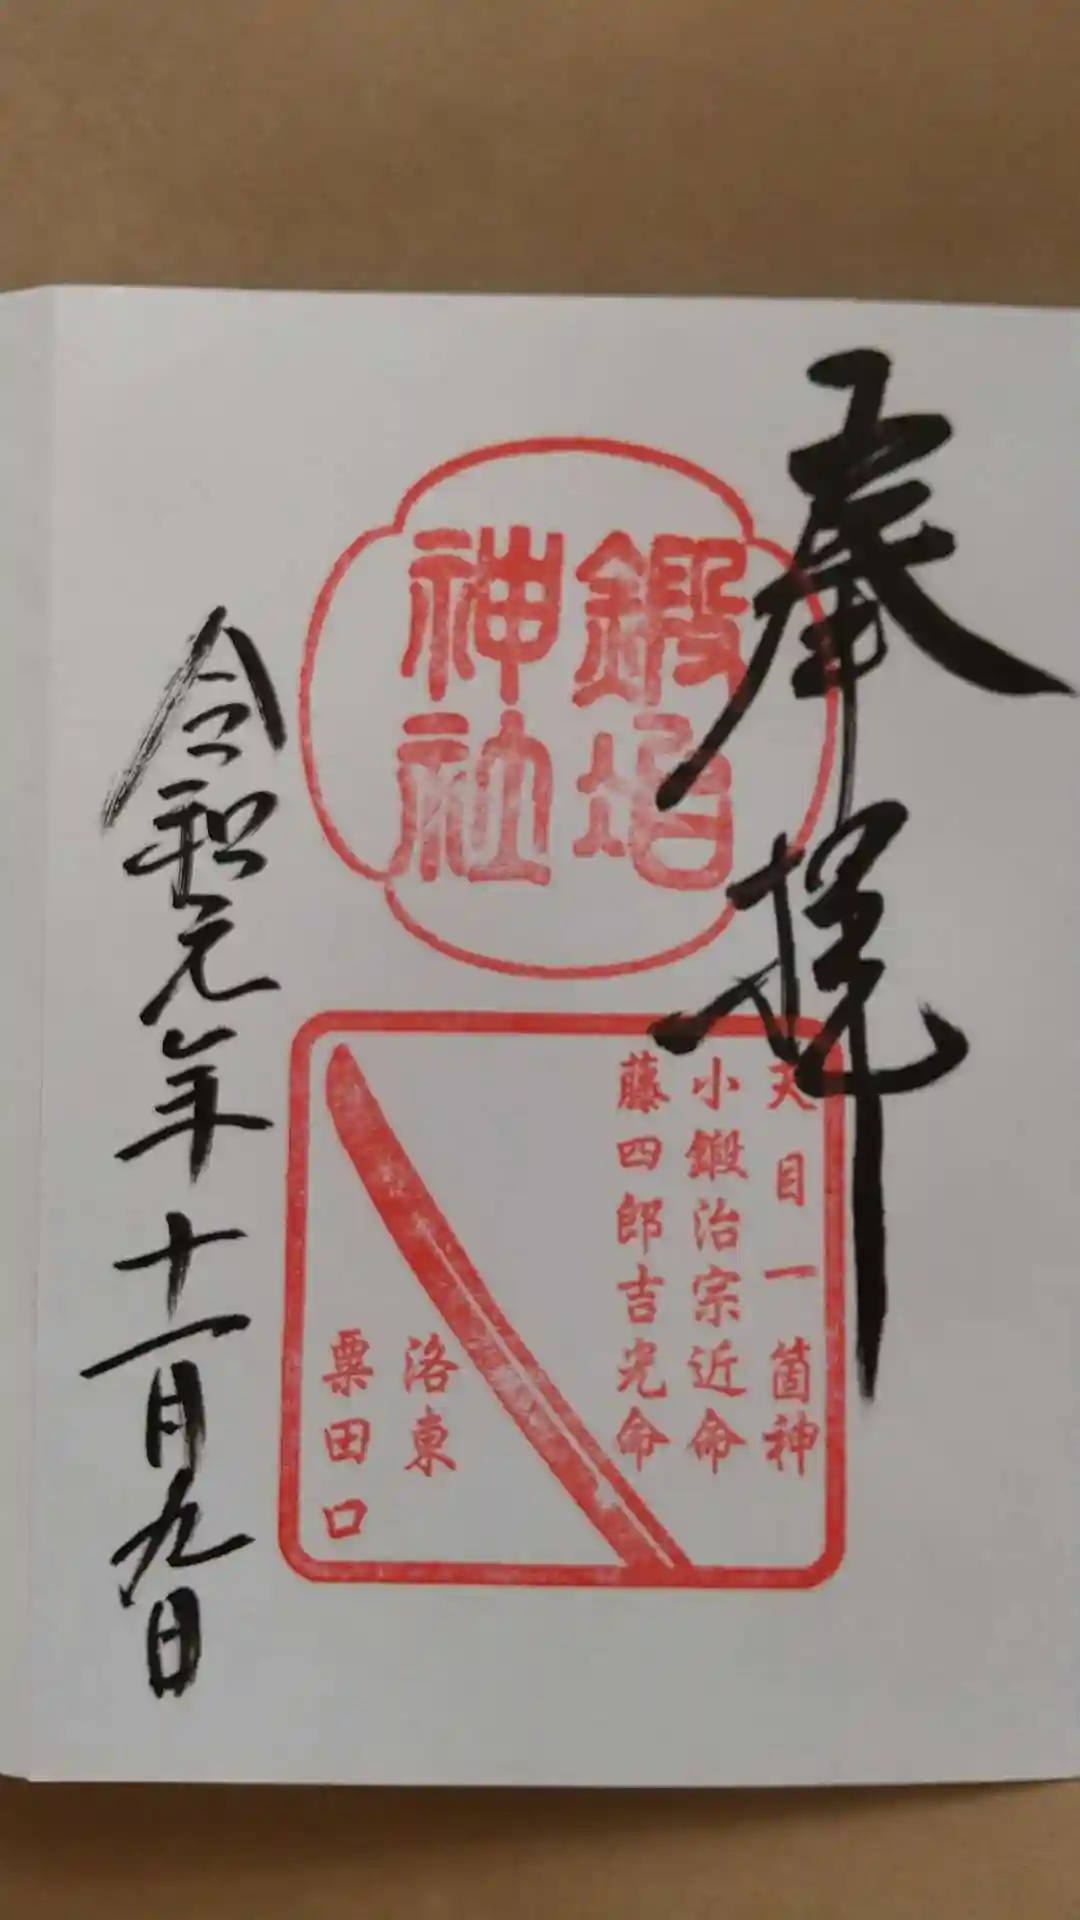 奉拝
鍛冶
神社
天目一箇神
小鍛治宗近命
藤四郎吉光命
洛東
粟田口
令和元年十一月九日